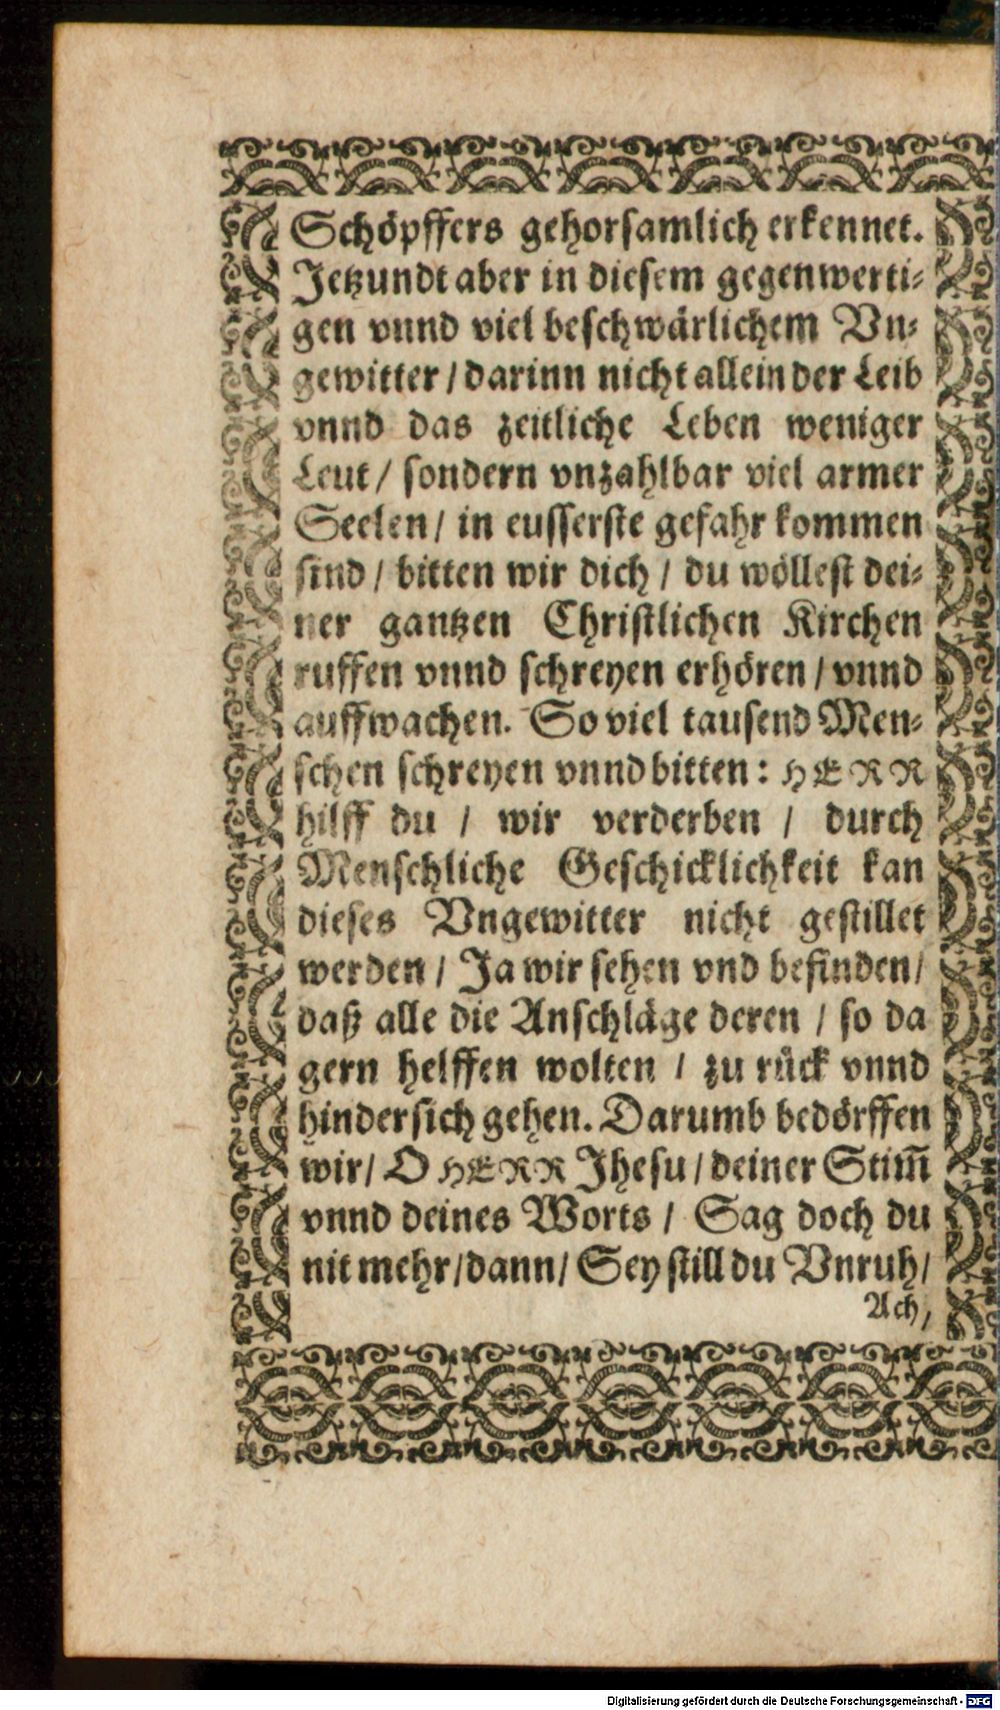 Schöpffers gehorsamlich erkennet.
Jetzundt aber in diesem gegenwerti-
gen vnnd viel beschwärlichem Vn-
gewitter / darinn nicht allein der Leib
vnnd das zeitliche Leben weniger
Leut / sondern vnzahlbar viel armer
Seelen / in eusserste gefahr kommen
sind / bitten wir dich / du wöllest dei-
ner gantzen Christlichen Kirchen
ruffen vnnd schreyen erhören / vnnd
auffwachen. So viel tausend Men-
schen schreyen vnnd bitten: HERR
hilff du / wir verderben / durch
Menschliche Geschicklichkeit kan
dieses Vngewitter nicht gestillet
werden / Ja wir sehen vnd befinden /
daß alle die Anschläge deren / so da
gern helffen wolten / zu rück vnnd
hindersich gehen. Darumb bedörffen
wir / O HERR Jhesu / deiner Stim̃
vnnd deines Worts / Sag doch du
nit mehr / dann / Sey still du Vnruh /
Ach,
Digitalisierung gefördert durch die Deutsche Forschungsgemeinschaft - DFG